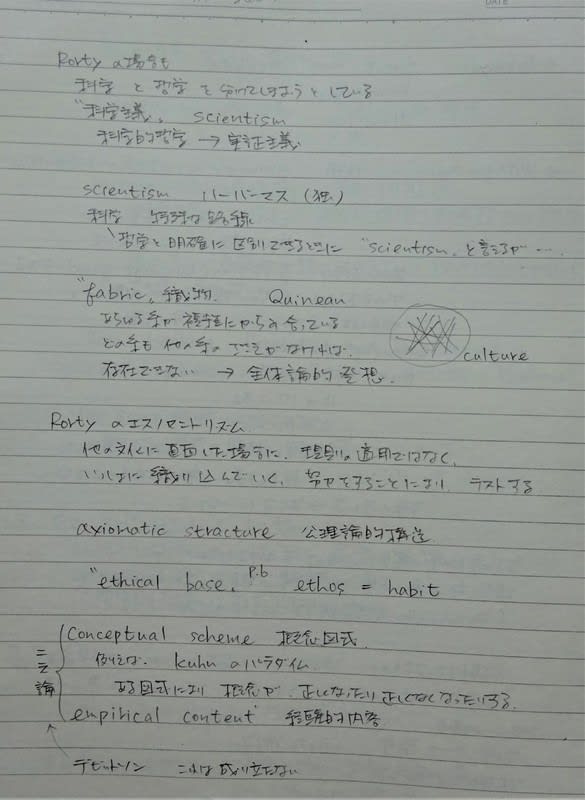 DATE
Rorty の場合も
科学 と 哲学 を 分けてしまおう としている
"科学主義" scientism
科学的哲学 → 実証主義
scientism ハーバーマス (独)
科学 特殊な
哲学と 明確に 区別できるときに "scientism" と言えるが …
"fabric" 織物 Quinean
あらゆる糸が 複雑に からみ合っている
どの糸も 他の糸の ささえがなければ
存在できない → 全体論的 発想.
culture
Rorty のエスノセントリズム
他の文化に 直面した場合に、規則の適用ではなく、
いかに 織り込んでいく、努力をすることにより テストする
axiomatic structure 公理論的構造
"ethical base" p.6 ethos = habit
二元論
Conceptual scheme 概念図式
例えば kuhn のパラダイム
ある図式により 概念が 正しくなったり正しくなくなったりする.
empirical content 経験的内容
デビットソン これは成り立たない